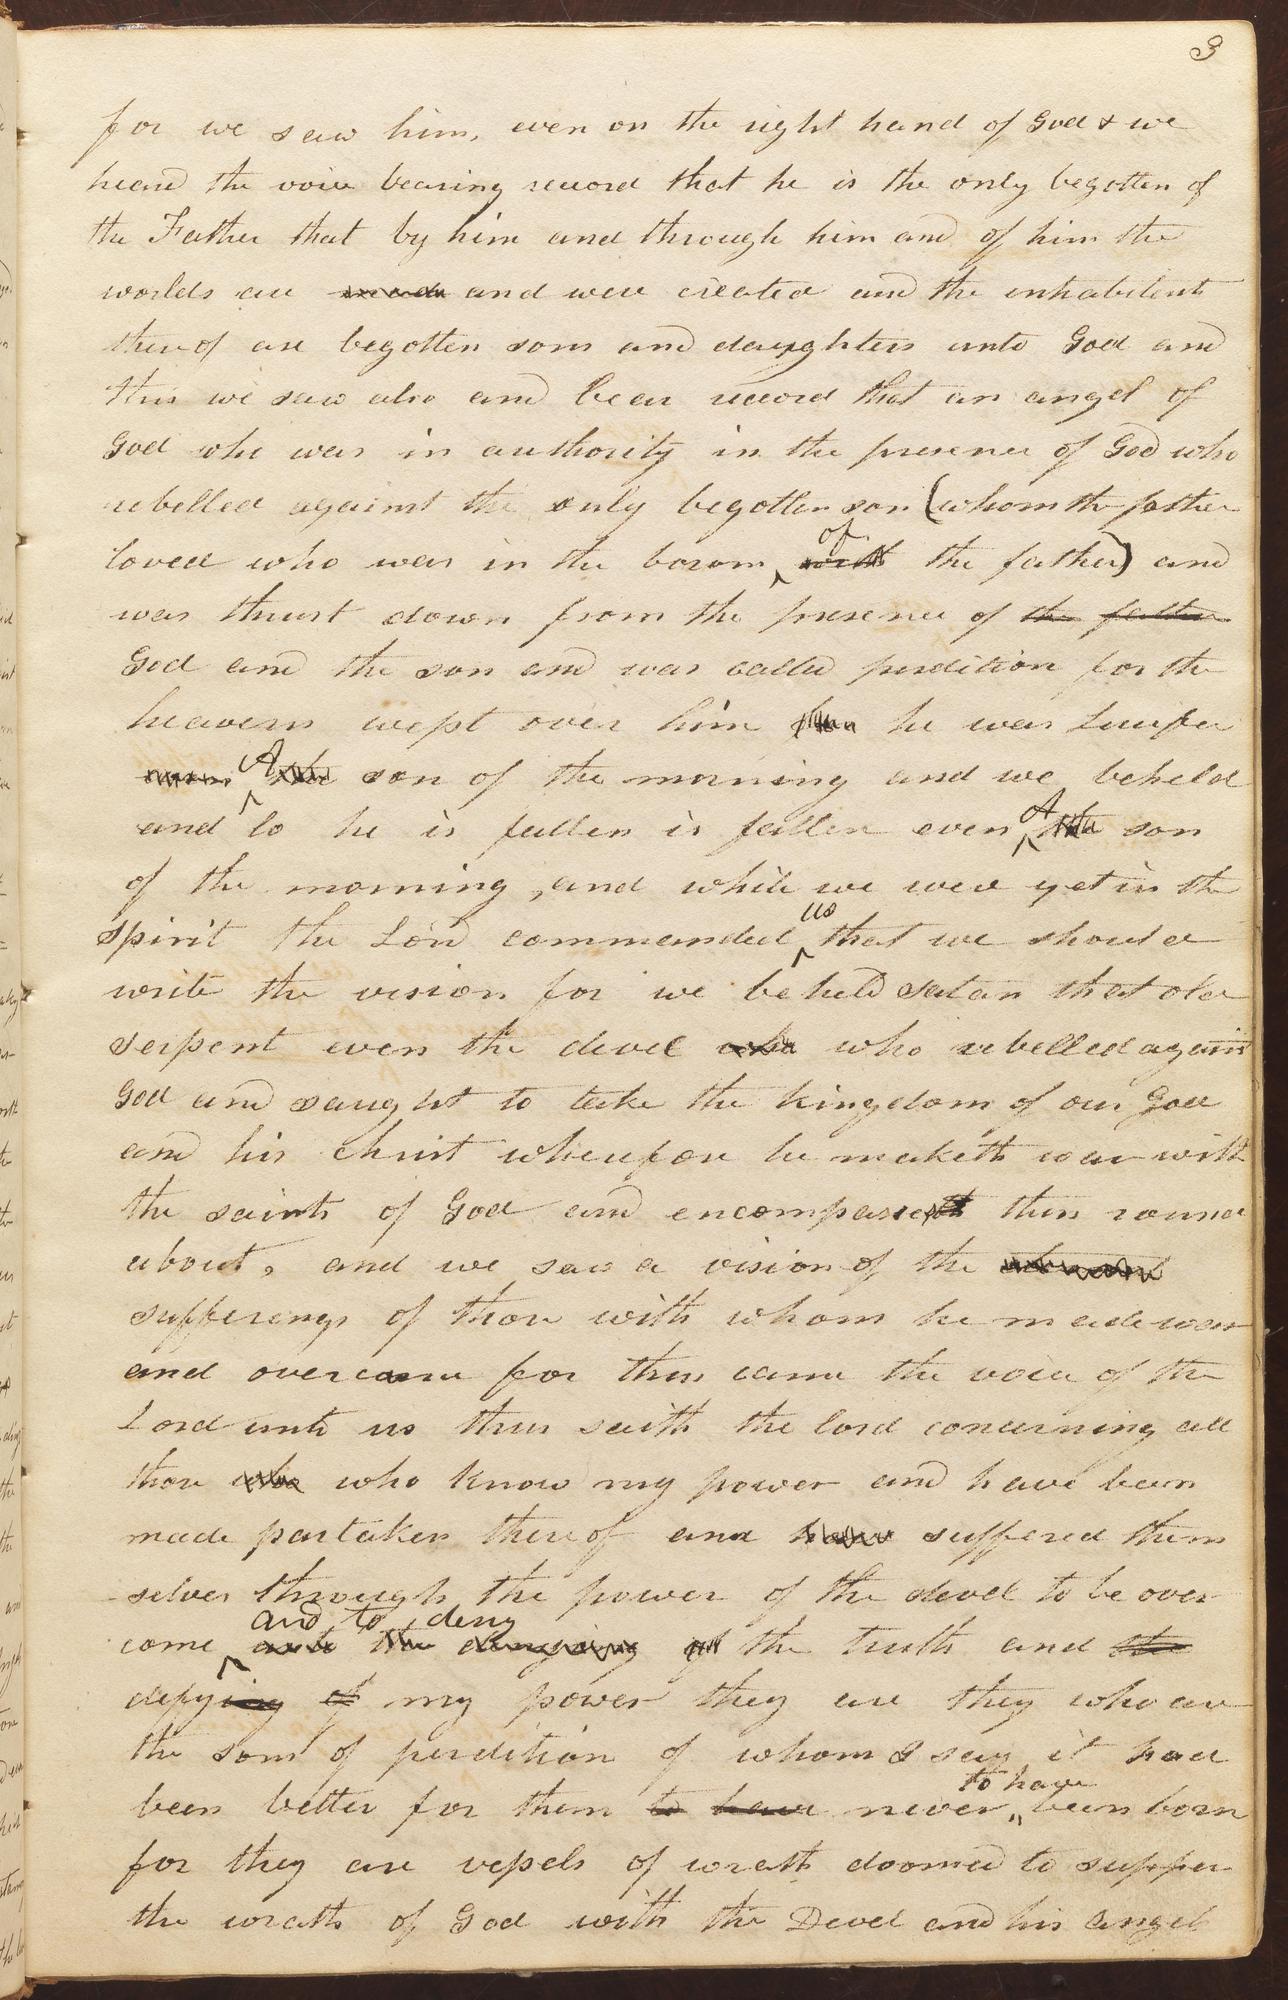 3
for we saw him, even on the right hand of God & we
heard the voice bearing record that he is the only begotten of
the Father that by him and through him and of him the
worlds are made and were created and the inhabitents
thereof are begotten sons and daughters unto God and
this we saw also and bear record that an angel of
God who was in authority in the presence of God who
rebelled against the only begotten son (whom the father
loved who was in the bosom of with the father) and
was thrust down from the presence of the father
God and the son and was called perdition for the
heavens wept over him he was Lucifer
A the son of the morning and we beheld
and lo he is fallen is fallen even A the son
of the morning, and while we were yet in the
spirit the Lord commanded us that we should
write the vision for we beheld satan that old
serpent even the devel who who rebelled against
God and saught to take the kingdom of our God
and his christ wherefore he maketh war with
the saints of God and encompasseth them round
about, and we saw a vision of the
sufferings of those with whom he made war
and overcame for thus came the voice of the
Lord unto us thus saith the lord concerning all
those who who know my power and have been
made partakers thereof and have suffered them
selves through the power of the devel to be over-
and to deny
come and the denying of the truth and the
defying of my power they are they who are
the sons of perdition of whom I say it had
to have
been better for them to have never been born
for they are vessels of wrath doomed to suffer
the wrath of God with the Devel and his angels